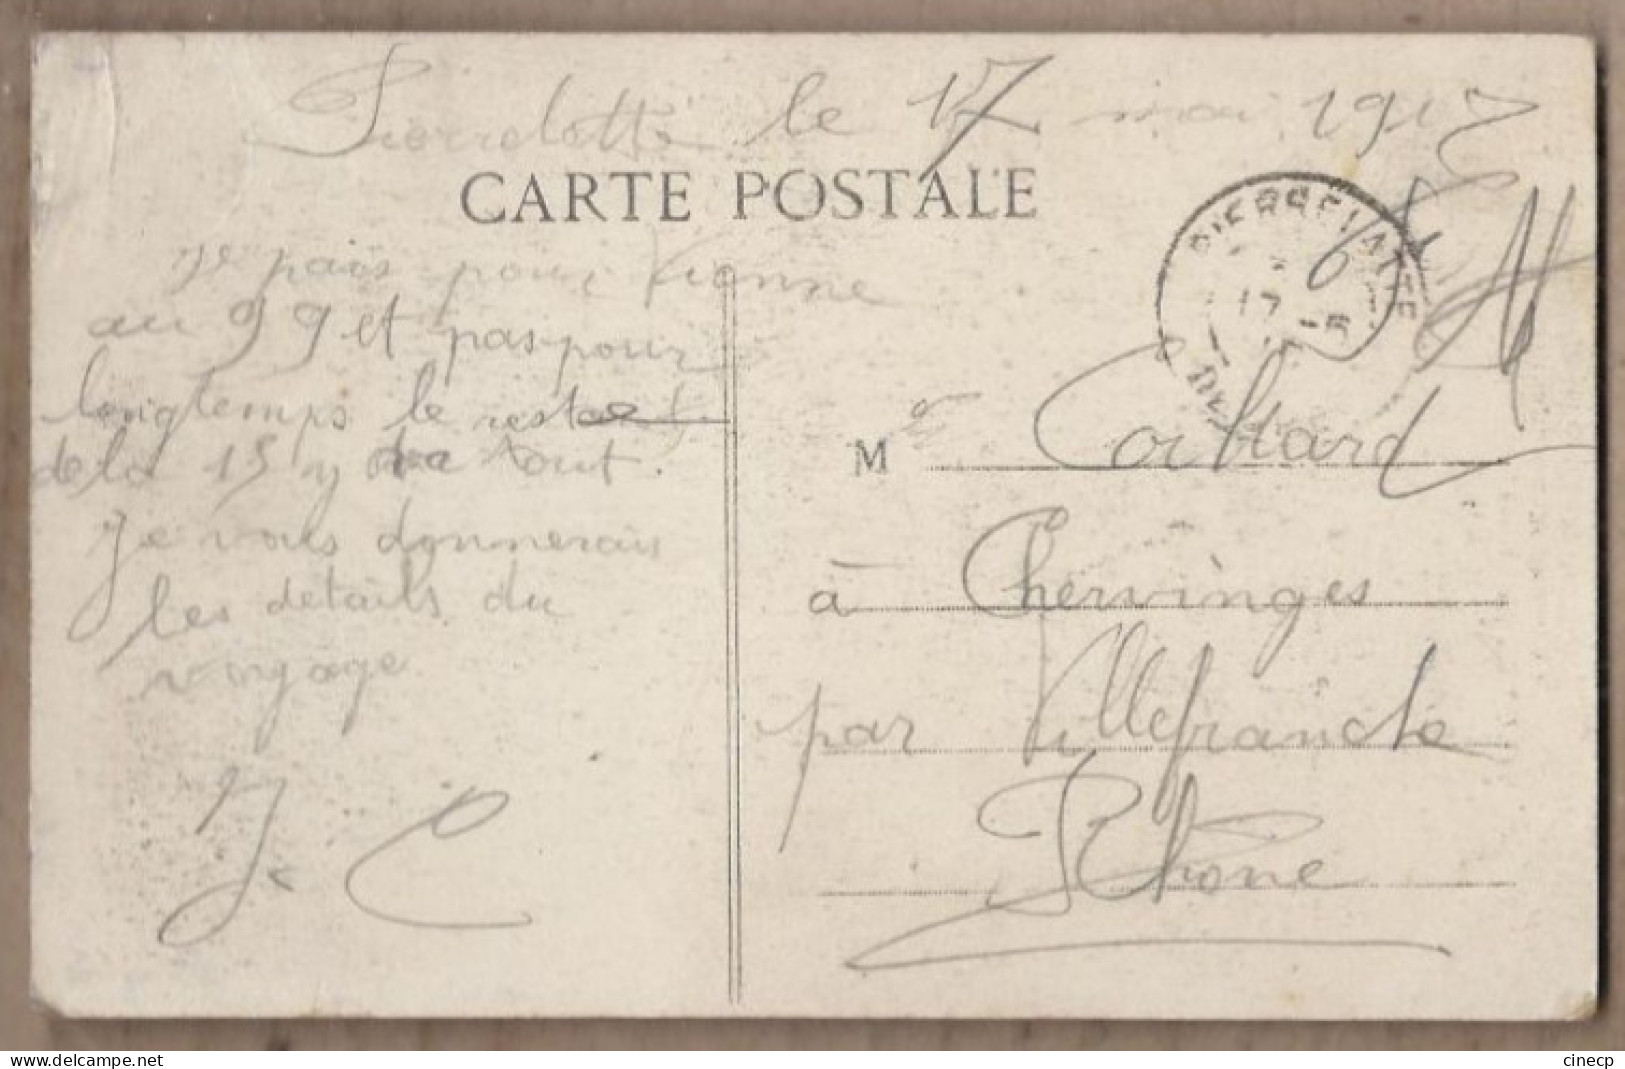 Pierrelatte le 17 mai 1917
CARTE POSTALE
PIERRELATTE
17 -5
Je pars pour Vienne
au 99 et pas pour
longtemps le reste
de la 15 y tout.
Je vous donnerais
les détails du
voyage
J C
M Coillard
à Chervinges
par Villefranche
Rhone
delcampe.net
cinecp